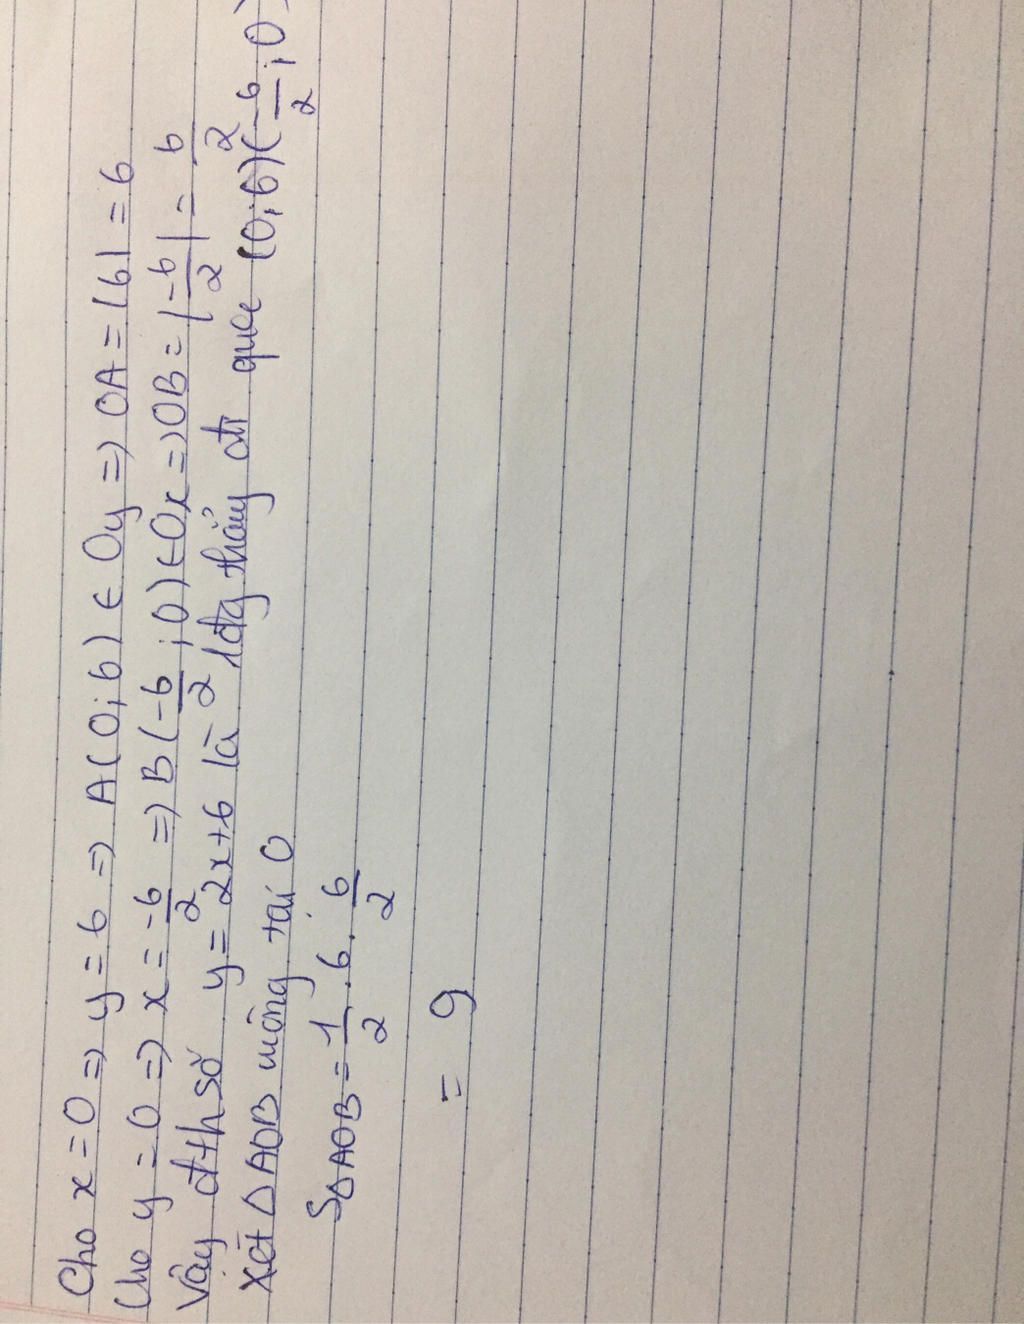 Cho x = 0 => y = 6 => A(0;6) ∈ Oy => OA = |6| = 6
Cho y = 0 => x = -6/2 => B(-6/2;0) ∈ Ox => OB = |-6/2| = 6/2
Vậy đthsố y = 2x+6 là 1đg thẳng đi qua (0;6)(-6/2;0)
Xét Δ AOB vuông tại O
SΔAOB = 1/2 . 6 . 6/2
= 9